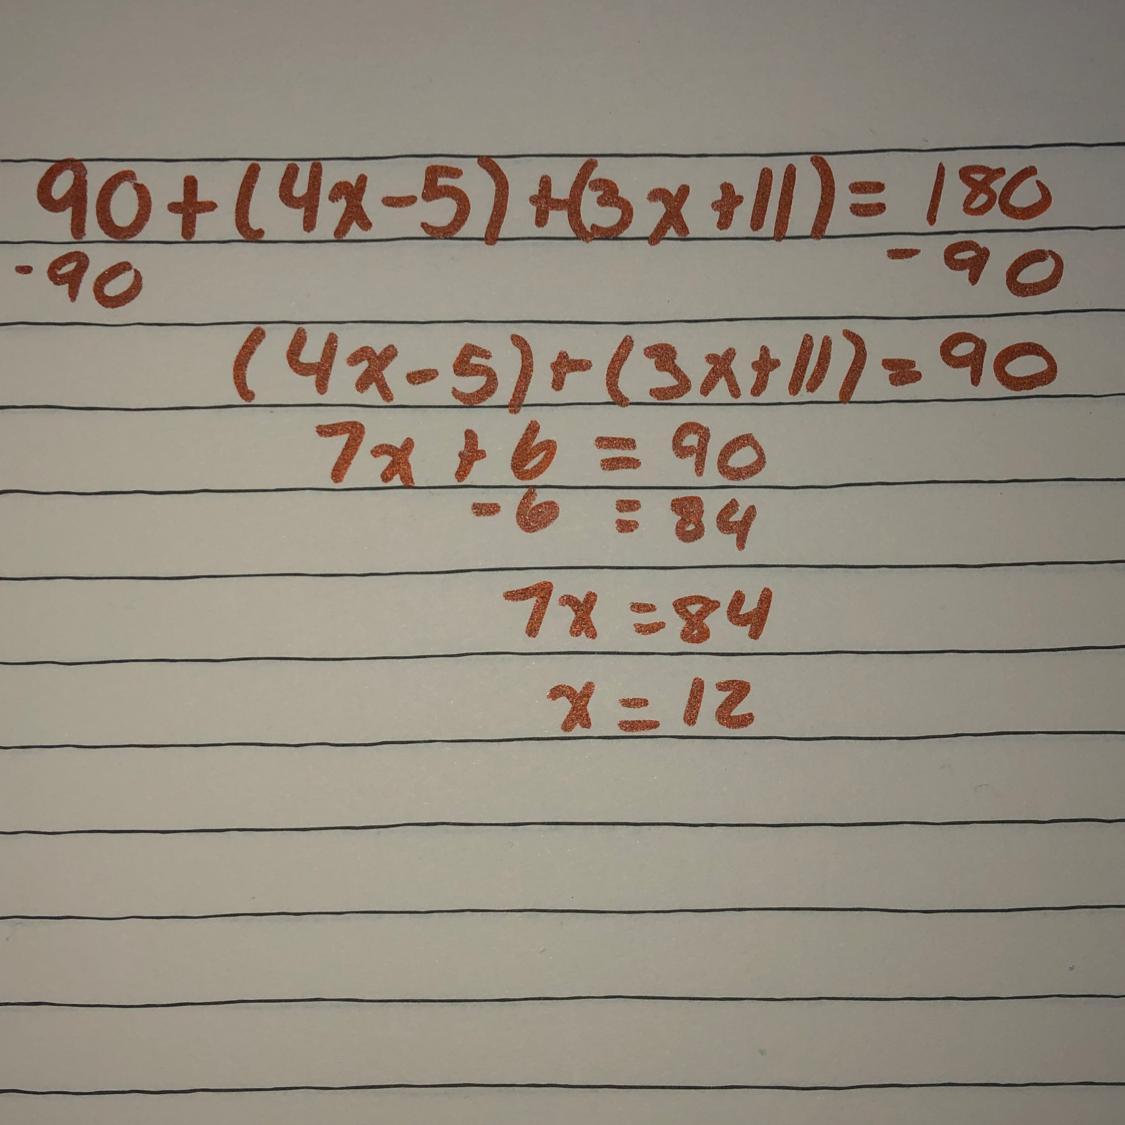 90+(4x-5)+(3x+11)=180
-90 -90
(4x-5)+(3x+11)=90
7x+6=90
-6 =84
7x=84
x=12